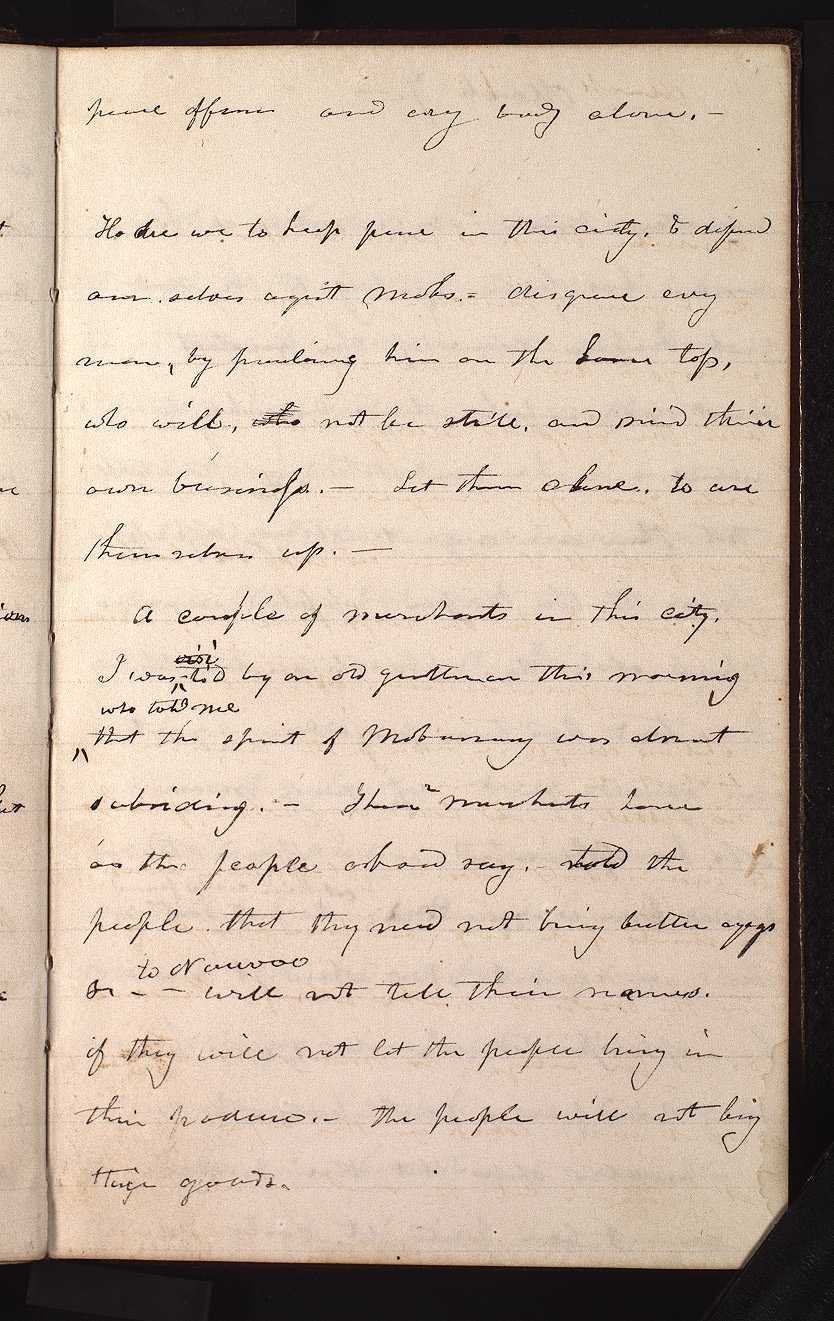 peace officers and evry body alone.—
How are we to keep peace in this city. & defend
our selves against mobs.= disgrace evry
man, by proclaiming him on the house top,
who will, who not be still. and mind their
own business.— Let them alone. to use
themselves up.—
A couple of merchants in this city.
visi
I was told by an old gentleman this morning
who told me
that the spirit of Mobocracy was about
subsiding.— These 2 merchants have
as the people abroad say.— told the
people. that they need not bring butter eggs
to Nauvoo
&c - - will not tell their names.
if they will not let the people bring in
their produce.— the people will not buy
their goods.